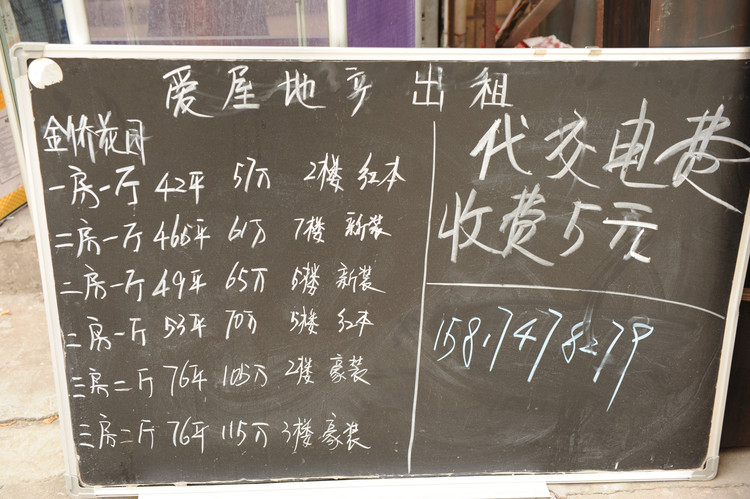 爱屋地产出租
金桥花园
一房一厅 42平 57万 2楼 红本
二房一厅 46.5平 61万 7楼 新装
二房一厅 49平 65万 6楼 新装
二房一厅 53平 70万 5楼 红本
三房二厅 76平 105万 2楼 豪装
三房二厅 76平 115万 3楼 豪装
代交电费
收费5元
15817478279